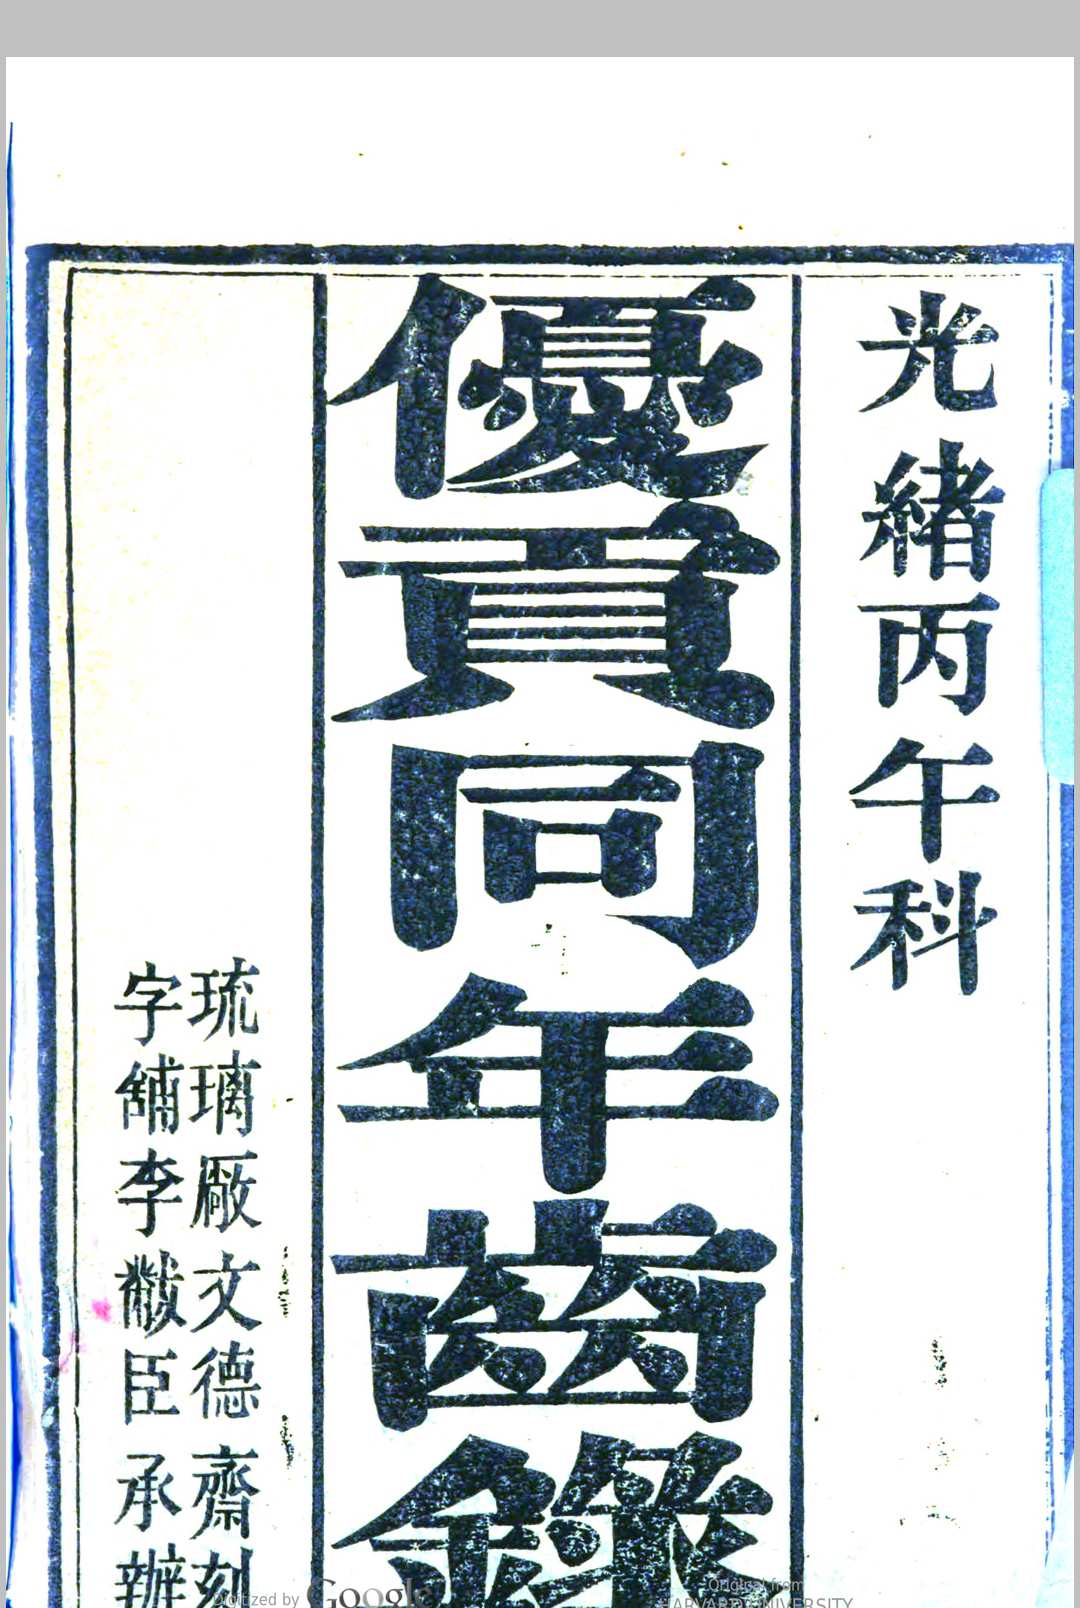 光緒丙午科
優貢同年齒錄
琉璃厰文德齋刻
字舖李黻臣承辦
Digitized by Google
Original from
HARVARD UNIVERSITY